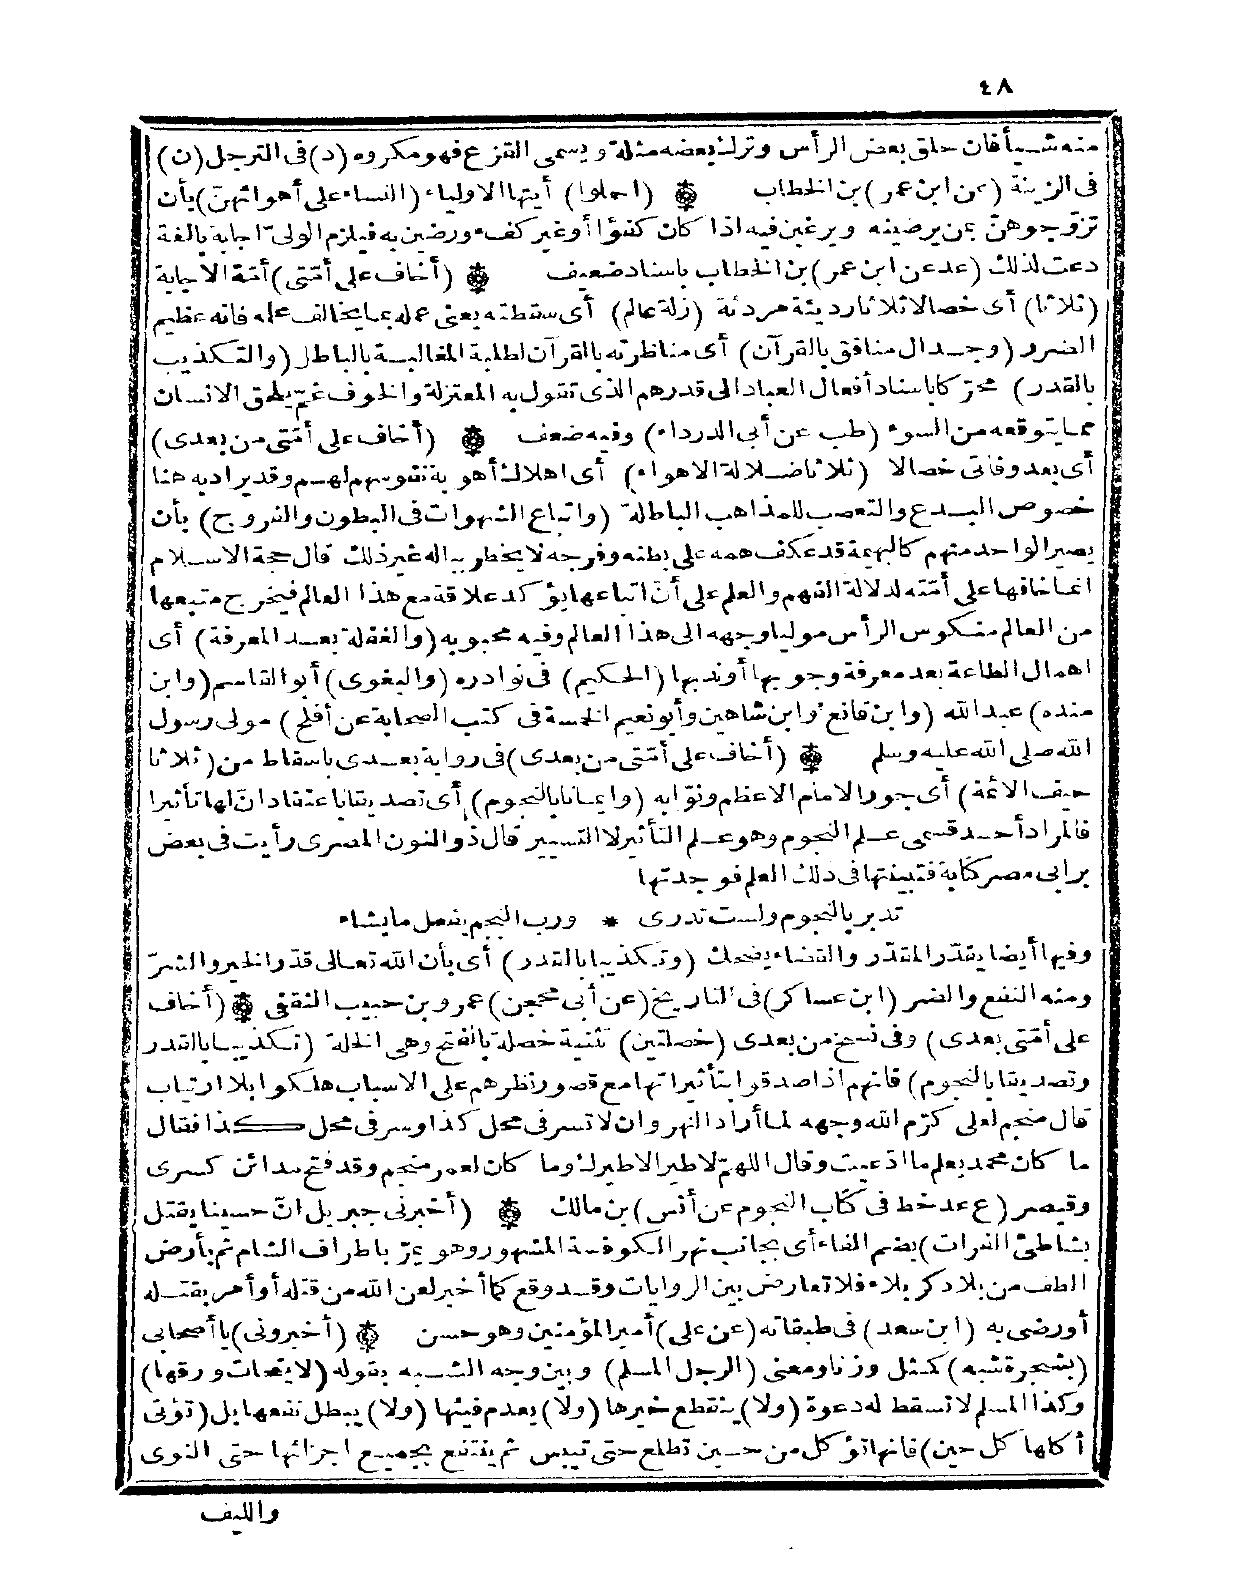 ٤٨
منه شيأ فان حلق بعض الرأس وترك بعضه مثلة ويسمى القزع فهو مكروه (د) فى الترجل (ن)
فى الزينة (عن ابن عمر) بن الخطاب (احملوا) أيتها الاولياء (النساء على أهوائهنّ) بأن
تزوّجوهنّ بمن يرضينه ويرغبن فيه اذا كان كفؤا أو غير كفء ورضين به فيلزم الولىّ اجابة بالغة
دعت لذلك (عد عن ابن عمر) بن الخطاب باسناد ضعيف (أخاف على أمّتى) أمّة الاجابة
(ثلاثا) أى خصالا ثلاثا رديئة مردئة (زلة عالم) أى سقطته يعنى عمله بما يخالف علمه فانه عظيم
الضرر (وجدال منافق بالقرآن) أى مناظرته بالقرآن لطلبة المغالبة بالباطل (والتكذيب
بالقدر) محرّكا باسناد أفعال العباد الى قدرهم الذى تقول به المعتزلة والخوف غمّ يلحق الانسان
مما يتوقعه من السوء (طب عن أبى الدرداء) وفيه ضعف (أخاف على أمّتى من بعدى)
أى بعد وفاتى خصالا (ثلاثا ضلالة الاهواء) أى اهلاك أهوية نفوسهم لهم وقد يراد به هنا
خصوص البدع والتعصب للمذاهب الباطلة (واتباع الشهوات فى البطون والفروج) بأن
يصير الواحد منهم كالبهيمة قد عكف همه على بطنه وفرجه لا يخطر بباله غير ذلك قال حجة الاسلام
انما خافها على أمّته لدلالة الفهم والعلم على أن اتباعها يؤكد علاقة مع هذا العالم فيخرج متبعها
من العالم منكوس الرأس موليا وجهه الى هذا العالم وفيه محبوبه (والغفلة بعد المعرفة) أى
اهمال الطاعة بعد معرفة وجوبها أو ندبها (الحكيم) فى نوادره (والبغوى) أبو القاسم (وابن
منده) عبد الله (وابن قانع وابن شاهين وأبو نعيم الخمسة فى كتب الصحابة عن أفلح) مولى رسول
الله صلى الله عليه وسلم (أخاف على أمّتى من بعدى) فى رواية بعدى باسقاط من (ثلاثا
حيف الائمة) أى جور الامام الاعظم ونوّابه (وايمانا بالنجوم) أى تصديقا باعتقاد انّ لها تأثيرا
فالمراد أحد قسمى علم النجوم وهو علم التأثير لا التسيير قال ذو النون المصرى رأيت فى بعض
برابى مصر كتابة فتبينتها فى ذلك العلم فوجدتها
تدبر بالنجوم ولست تدرى * ورب النجم يفعل ما يشاء
وفيها أيضا يقدّر المقدّر والقضاء يضحك (وتكذيبا بالقدر) أى بأن الله تعالى قدّر الخير والشرّ
ومنه النفع والضر (ابن عساكر) فى التاريخ (عن أبى محجن) عمرو بن حبيب الثقفى (أخاف
على أمّتى بعدى) وفى نسخ من بعدى (خصلتين) تثنية خصلة بالفتح وهى الخلة (تكذيبا بالقدر
وتصديقا بالنجوم) فانهم اذا صدقوا بتأثيراتها مع قصور نظرهم على الاسباب هلكوا بلا ارتياب
قال منجم لعلى كرّم الله وجهه لما أراد النهروان لا تسر فى محل كذا وسر فى محل كذا فقال
ما كان محمد يعلم ما ادّعيت وقال اللهمّ لا طير الا طيرك وما كان لعمر منجم وقد فتح مدائن كسرى
وقيصر (ع عد خط فى كتاب النجوم عن أنس) بن مالك (أخبرنى جبريل انّ حسينا يقتل
بشاطئ الفرات) بضم الفاء أى بجانب نهر الكوفة المشهور وهو يمرّ باطراف الشام ثم بأرض
الطف من بلاد كربلاء فلا تعارض بين الروايات وقد وقع كما أخبر لعن الله من قتله أو أمر بقتله
أو رضى به (ابن سعد) فى طبقاته (عن على) أمير المؤمنين وهو حسن (أخبرونى) يا أصحابى
(بشجرة شبه) كمثل وزنا ومعنى (الرجل المسلم) وبين وجه الشبه بقوله (لا يتحات ورقها)
وكذا المسلم لا تسقط له دعوة (ولا) ينقطع خيرها (ولا) يعدم فيئها (ولا) يبطل نفعها بل (تؤتى
أكلها كل حين) فانها تؤكل من حين تطلع حتى تيبس ثم ينتفع بجميع اجزائها حتى النوى
والليف